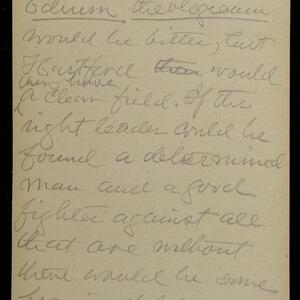 Odium, theologicum
would be bitter, but
Hartford then would
then have
a clean field. If the
right leader could be
found a determined
man and a good
fighter against all
that are without
there would be some